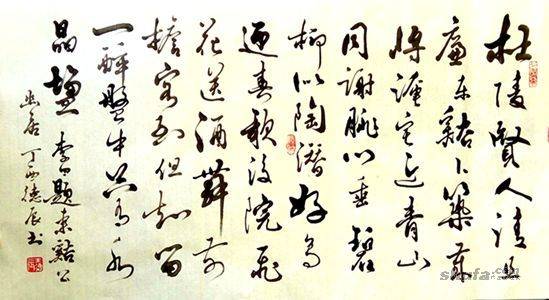 杜陵賢人清且
廉東谿卜築歲
将淹宅近青山
同謝脁門垂碧
柳似陶潛好鳥
迎春歌後院飛
花送酒舞前
檐客到但知留
一醉盤中只有水
晶鹽 李白題東谿公
幽居 丁酉德辰书